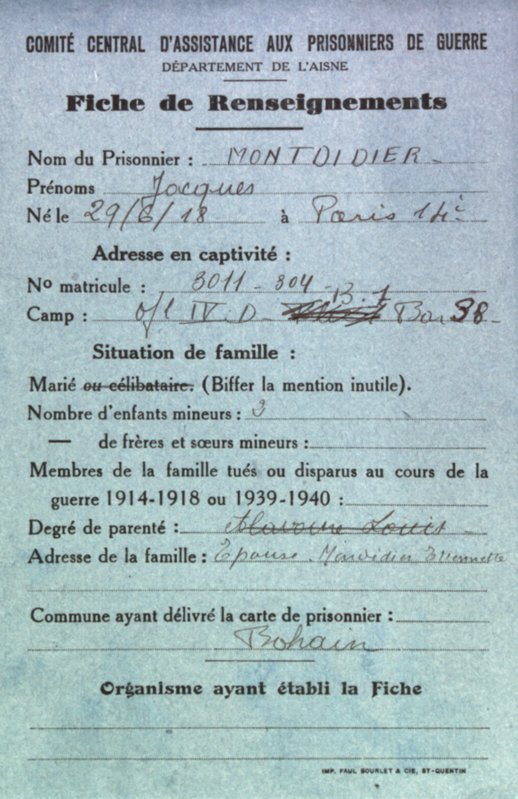 COMITÉ CENTRAL D'ASSISTANCE AUX PRISONNIERS DE GUERRE
DÉPARTEMENT DE L'AISNE
Fiche de Renseignements
Nom du Prisonnier : MONTDIDIER
Prénoms Jacques
Né le 29/6/18 à Paris 14e
Adresse en captivité :
No matricule : 3011 - 304
Camp : Ofl IV. D B. 1 Bar 38
Situation de famille :
Marié ou célibataire. (Biffer la mention inutile).
Nombre d'enfants mineurs : 3
— de frères et sœurs mineurs :
Membres de la famille tués ou disparus au cours de la
guerre 1914-1918 ou 1939-1940 :
Degré de parenté : Louis
Adresse de la famille : Epouse
Commune ayant délivré la carte de prisonnier :
Bohain
Organisme ayant établi la Fiche
IMP. PAUL BOURLET & CIE, ST-QUENTIN